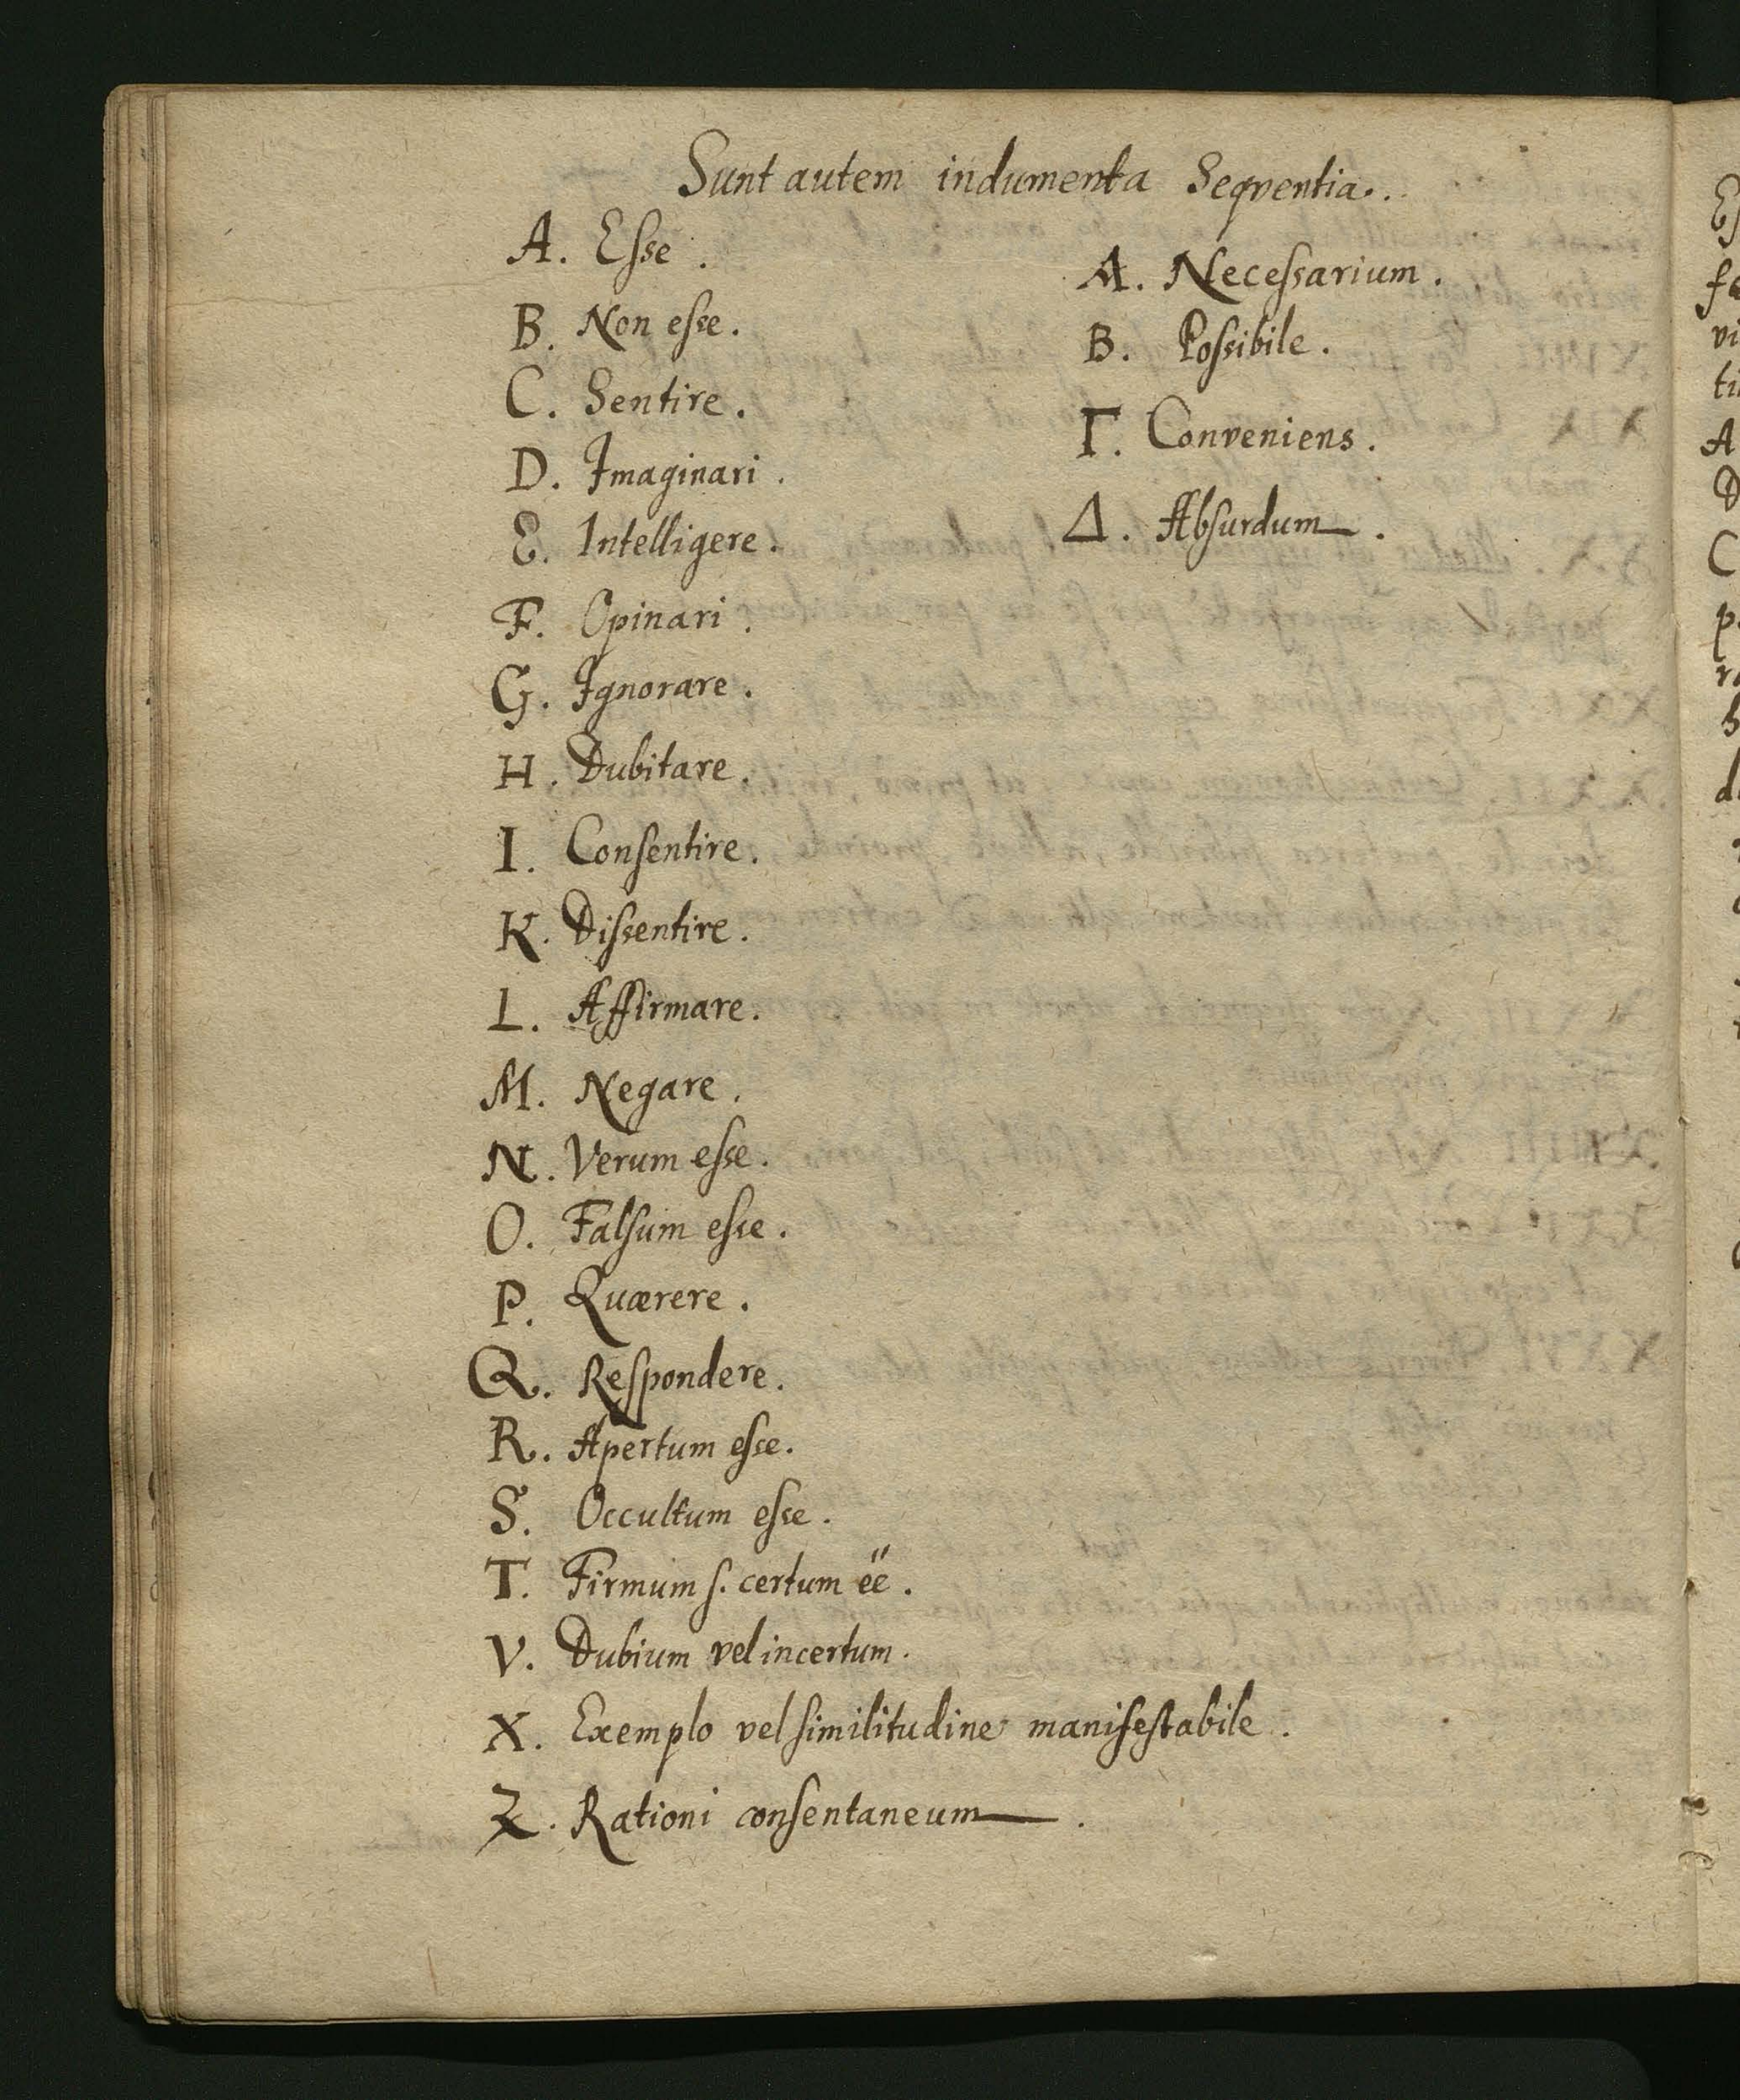 Sunt autem indumenta Seqventia.
A. Esse.
B. Non esse.
C. Sentire.
D. Imaginari.
E. Intelligere.
F. Opinari.
G. Ignorare.
H. Dubitare.
I. Consentire.
K. Dissentire.
L. Affirmare.
M. Negare.
N. Verum esse.
O. Falsum esse.
P. Quærere.
Q. Respondere.
R. Apertum esse.
S. Occultum esse.
T. Firmum s. certum ëe.
V. Dubium vel incertum.
X. Exemplo vel similitudine manifestabile.
Z. Rationi consentaneum.
Α. Necessarium.
Β. Possibile.
Γ. Conveniens.
Δ. Absurdum.